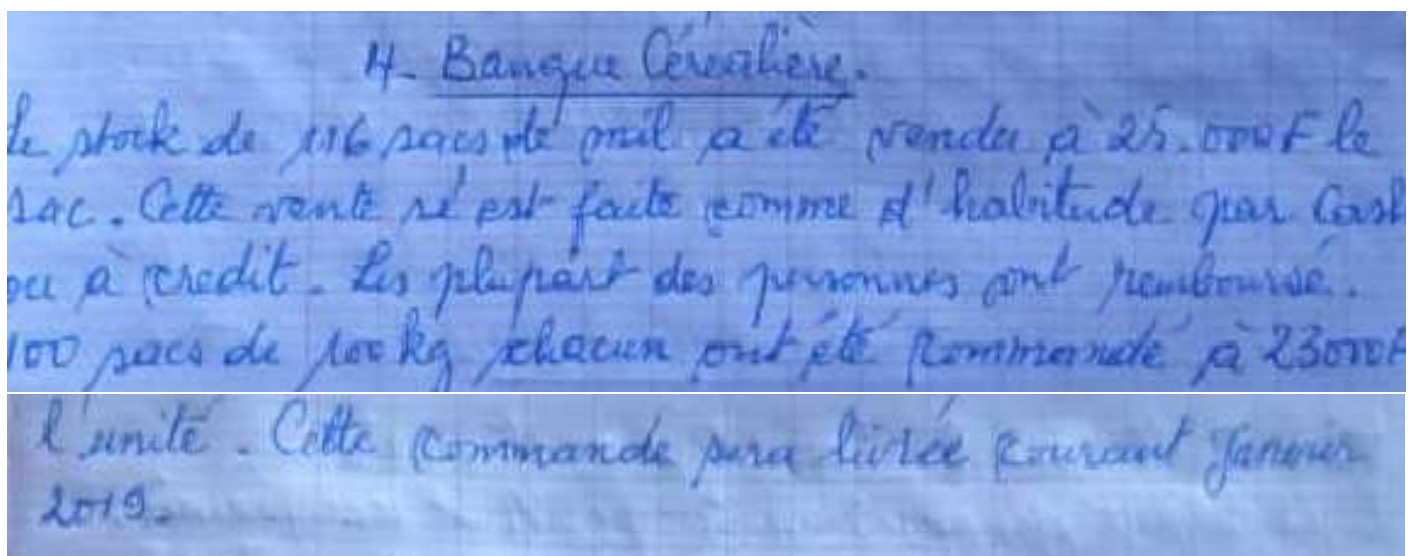 4- Banque Céréalière.
Le stock de 116 sacs de mil a été vendu à 25.000F le
sac. Cette vente s'est faite comme d'habitude par Cash
ou à crédit. Les plupart des personnes ont remboursé.
100 sacs de 100kg chacun ont été commandé à 23000F
l'unité. Cette commande sera livrée courant Janvier
2019.